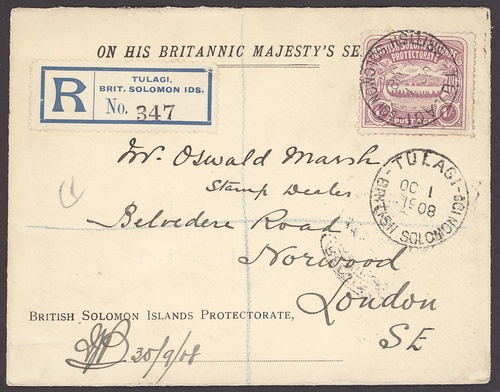 ON HIS BRITANNIC MAJESTY'S SE
BRITISH SOLOMON
PROTECTORATE
POSTAGE
1/-
TULAGI
R
TULAGI,
BRIT. SOLOMON IDS.
No. 347
Mr. Oswald Marsh
Stamp Dealer
Belvedere Road
Norwood
London
SE
TULAGI - BRITISH SOLOMON IDS
1 OC
1908
BRITISH SOLOMON ISLANDS PROTECTORATE,
30/9/08